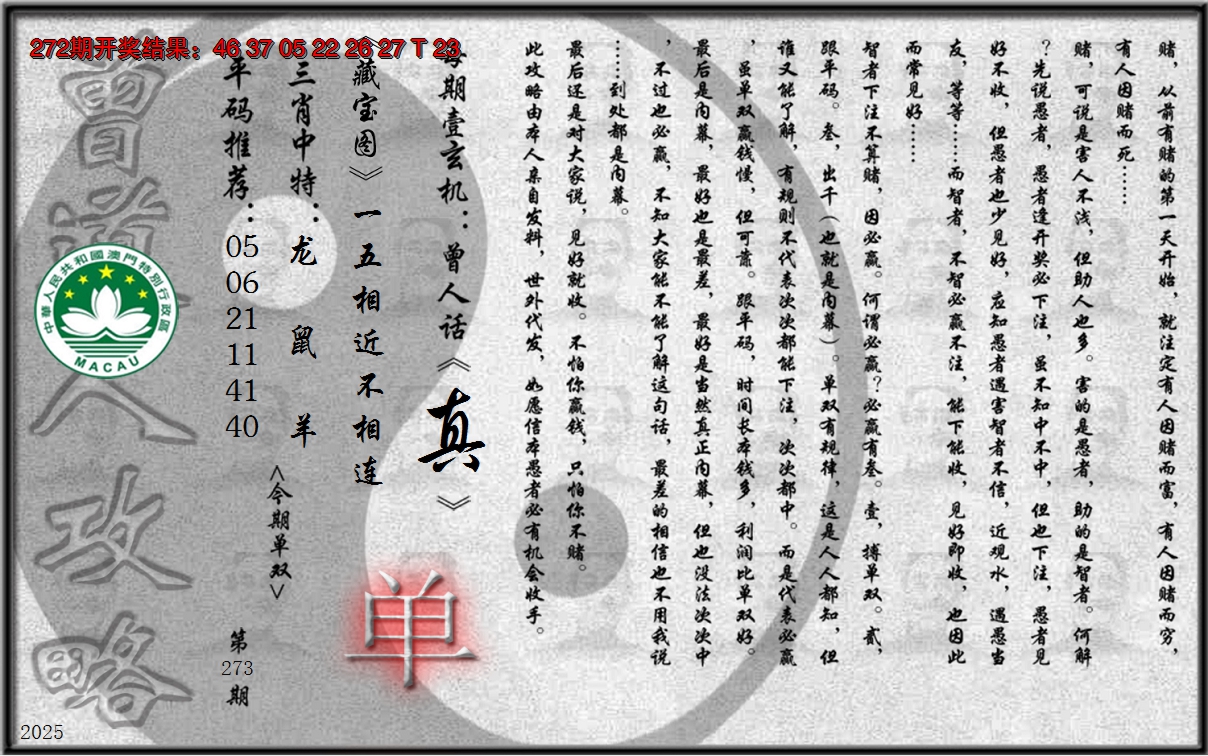 272期开奖结果：46 37 05 22 26 27 T 23
赌，从前有赌的第一天开始，就注定有人因赌而富，有人因赌而穷，
有人因赌而死……
赌，可说是害人不浅，但助人也多。害的是愚者，助的是智者。何解
？先说愚者，愚者逢开奖必下注，虽不知中不中，但也下注，愚者见
好不收，但愚者也少见好，应知愚者遇害智者不信，近观水，遇愚当
友，等等……而智者，不智必赢不注，能下能收，见好即收，也因此
而常见好……
智者下注不算赌，因必赢。何谓必赢？必赢有叁。壹，搏单双。贰，
跟平码。叁，出千（也就是内幕）。单双有规律，这是人人都知，但
谁又能了解，有规则不代表次次都能下注，次次都中。而是代表必赢
，虽单双赢钱慢，但可靠。跟平码，时间长本钱多，利润比单双好。
最后是内幕，最好也是最差，最好是当然真正内幕，但也没法次次中
，不过也必赢，不知大家能不能了解这句话，最差的相信也不用我说
……到处都是内幕。
最后还是对大家说，见好就收。不怕你赢钱，只怕你不赌。
此攻略由本人亲自发料，世外代发，如愿信本愚者必有机会收手。
每期壹玄机：曾人话《真》
《藏宝图》一五相近不相连
三肖中特：龙 鼠 羊
平码推荐：05 06 21 11 41 40
<今期单双>
单
第273期
曾道人攻略
中華人民共和國澳門特別行政區
MACAU
2025